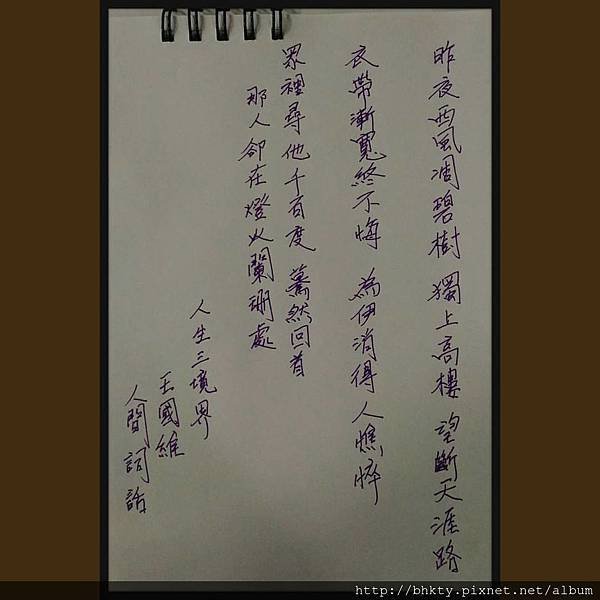 昨夜西風凋碧樹 獨上高樓 望斷天涯路
衣帶漸寬終不悔 為伊消得人憔悴
眾裡尋他千百度 驀然回首
那人卻在燈火闌珊處
人生三境界
王國維
人間詞話
http://bhkty.pixnet.net/album